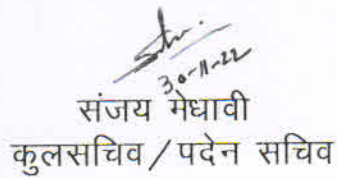 30-11-22
संजय मेधावी
कुलसचिव/पदेन सचिव